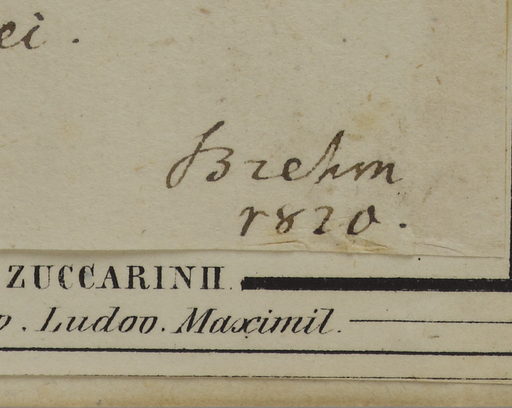 ei.
Brehm
1820.
ZUCCARINII.
o. Ludov. Maximil.